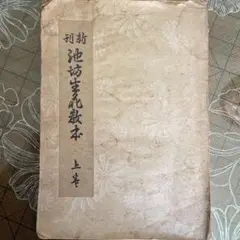 新刊
池坊生花教本
上巻